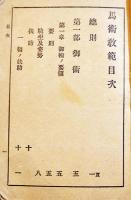 馬術教範目次
總則 頁一
第一部 御術 五
第一章 御術ノ要領 五
要則 五
騎坐及姿勢 八
扶助 十
一 ノ扶助 十